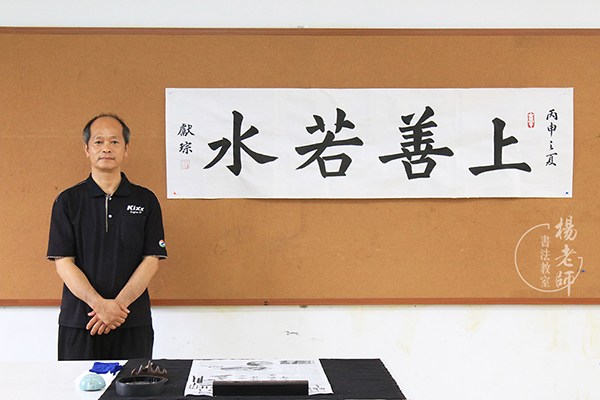 丙申之夏
上善若水
獻琮
Kixx
楊老師
書法教室